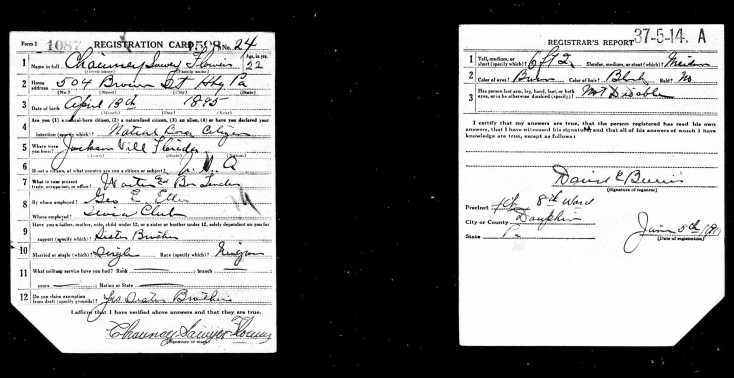 Form 1 1087 REGISTRATION CARD 1508 No. 24
1 Name in full Chauncey Sawyer Flowers Age, in yrs. 22
(Given name) (Family name)
2 Home address 504 Brown St Hbg Pa
(No.) (Street) (City) (State)
3 Date of birth April 18th 1895
(Month) (Day) (Year)
4 Are you (1) a natural-born citizen, (2) a naturalized citizen, (3) an alien, (4) or have you declared your
intention (specify which)? Natural Born Citizen
5 Where were you born? Jacksonvill Florida
(Town) (State) (Nation)
6 If not a citizen, of what country are you a citizen or subject? U. S. A
7 What is your present trade, occupation, or office? Waiter
8 By whom employed? Geo E. Etter
Where employed? Club
9 Have you a father, mother, wife, child under 12, or a sister or brother under 12, solely dependent on you for
support (specify which)? Sister Brother
10 Married or single (which)? Single Race (specify which)?
11 What military service have you had? Rank ; branch
years ; Nation or State
12 Do you claim exemption from draft (specify grounds)? Yes Sister Brother
I affirm that I have verified above answers and that they are true.
Chauncey Sawyer Flowers
(Signature or mark)
REGISTRAR'S REPORT 37-5-14. A
1 Tall, medium, or short (specify which)? 6 ft 2 Slender, medium, or stout (which)? Medium
2 Color of eyes? Brown Color of hair? Black Bald? No
3 Has person lost arm, leg, hand, foot, or both eyes, or is he otherwise disabled (specify)? Not Disable
I certify that my answers are true, that the person registered has read his own
answers, that I have witnessed his signature, and that all of his answers of which I have
knowledge are true, except as follows:
David E
(Signature of registrar)
Precinct 8th Ward
City or County Dauphin
State Pa
June 5th 1917
(Date of registration)